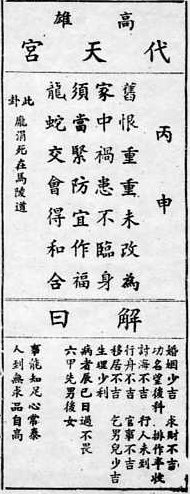 高雄
代天宮
丙申
舊恨重重未改為
家中禍患不臨身
須當緊防宜作福
龍蛇交會得和合
此卦
龐涓死在馬陵道
解曰
婚姻少吉 求財不吉
功名望後科 耕作半收
討海不吉 行人未到
行舟不吉 官事不吉
移居不吉 乞男兒少吉
生理少利
病者辰巳日過不畏
六甲先男後女
事能知足心常泰
人到無求品自高